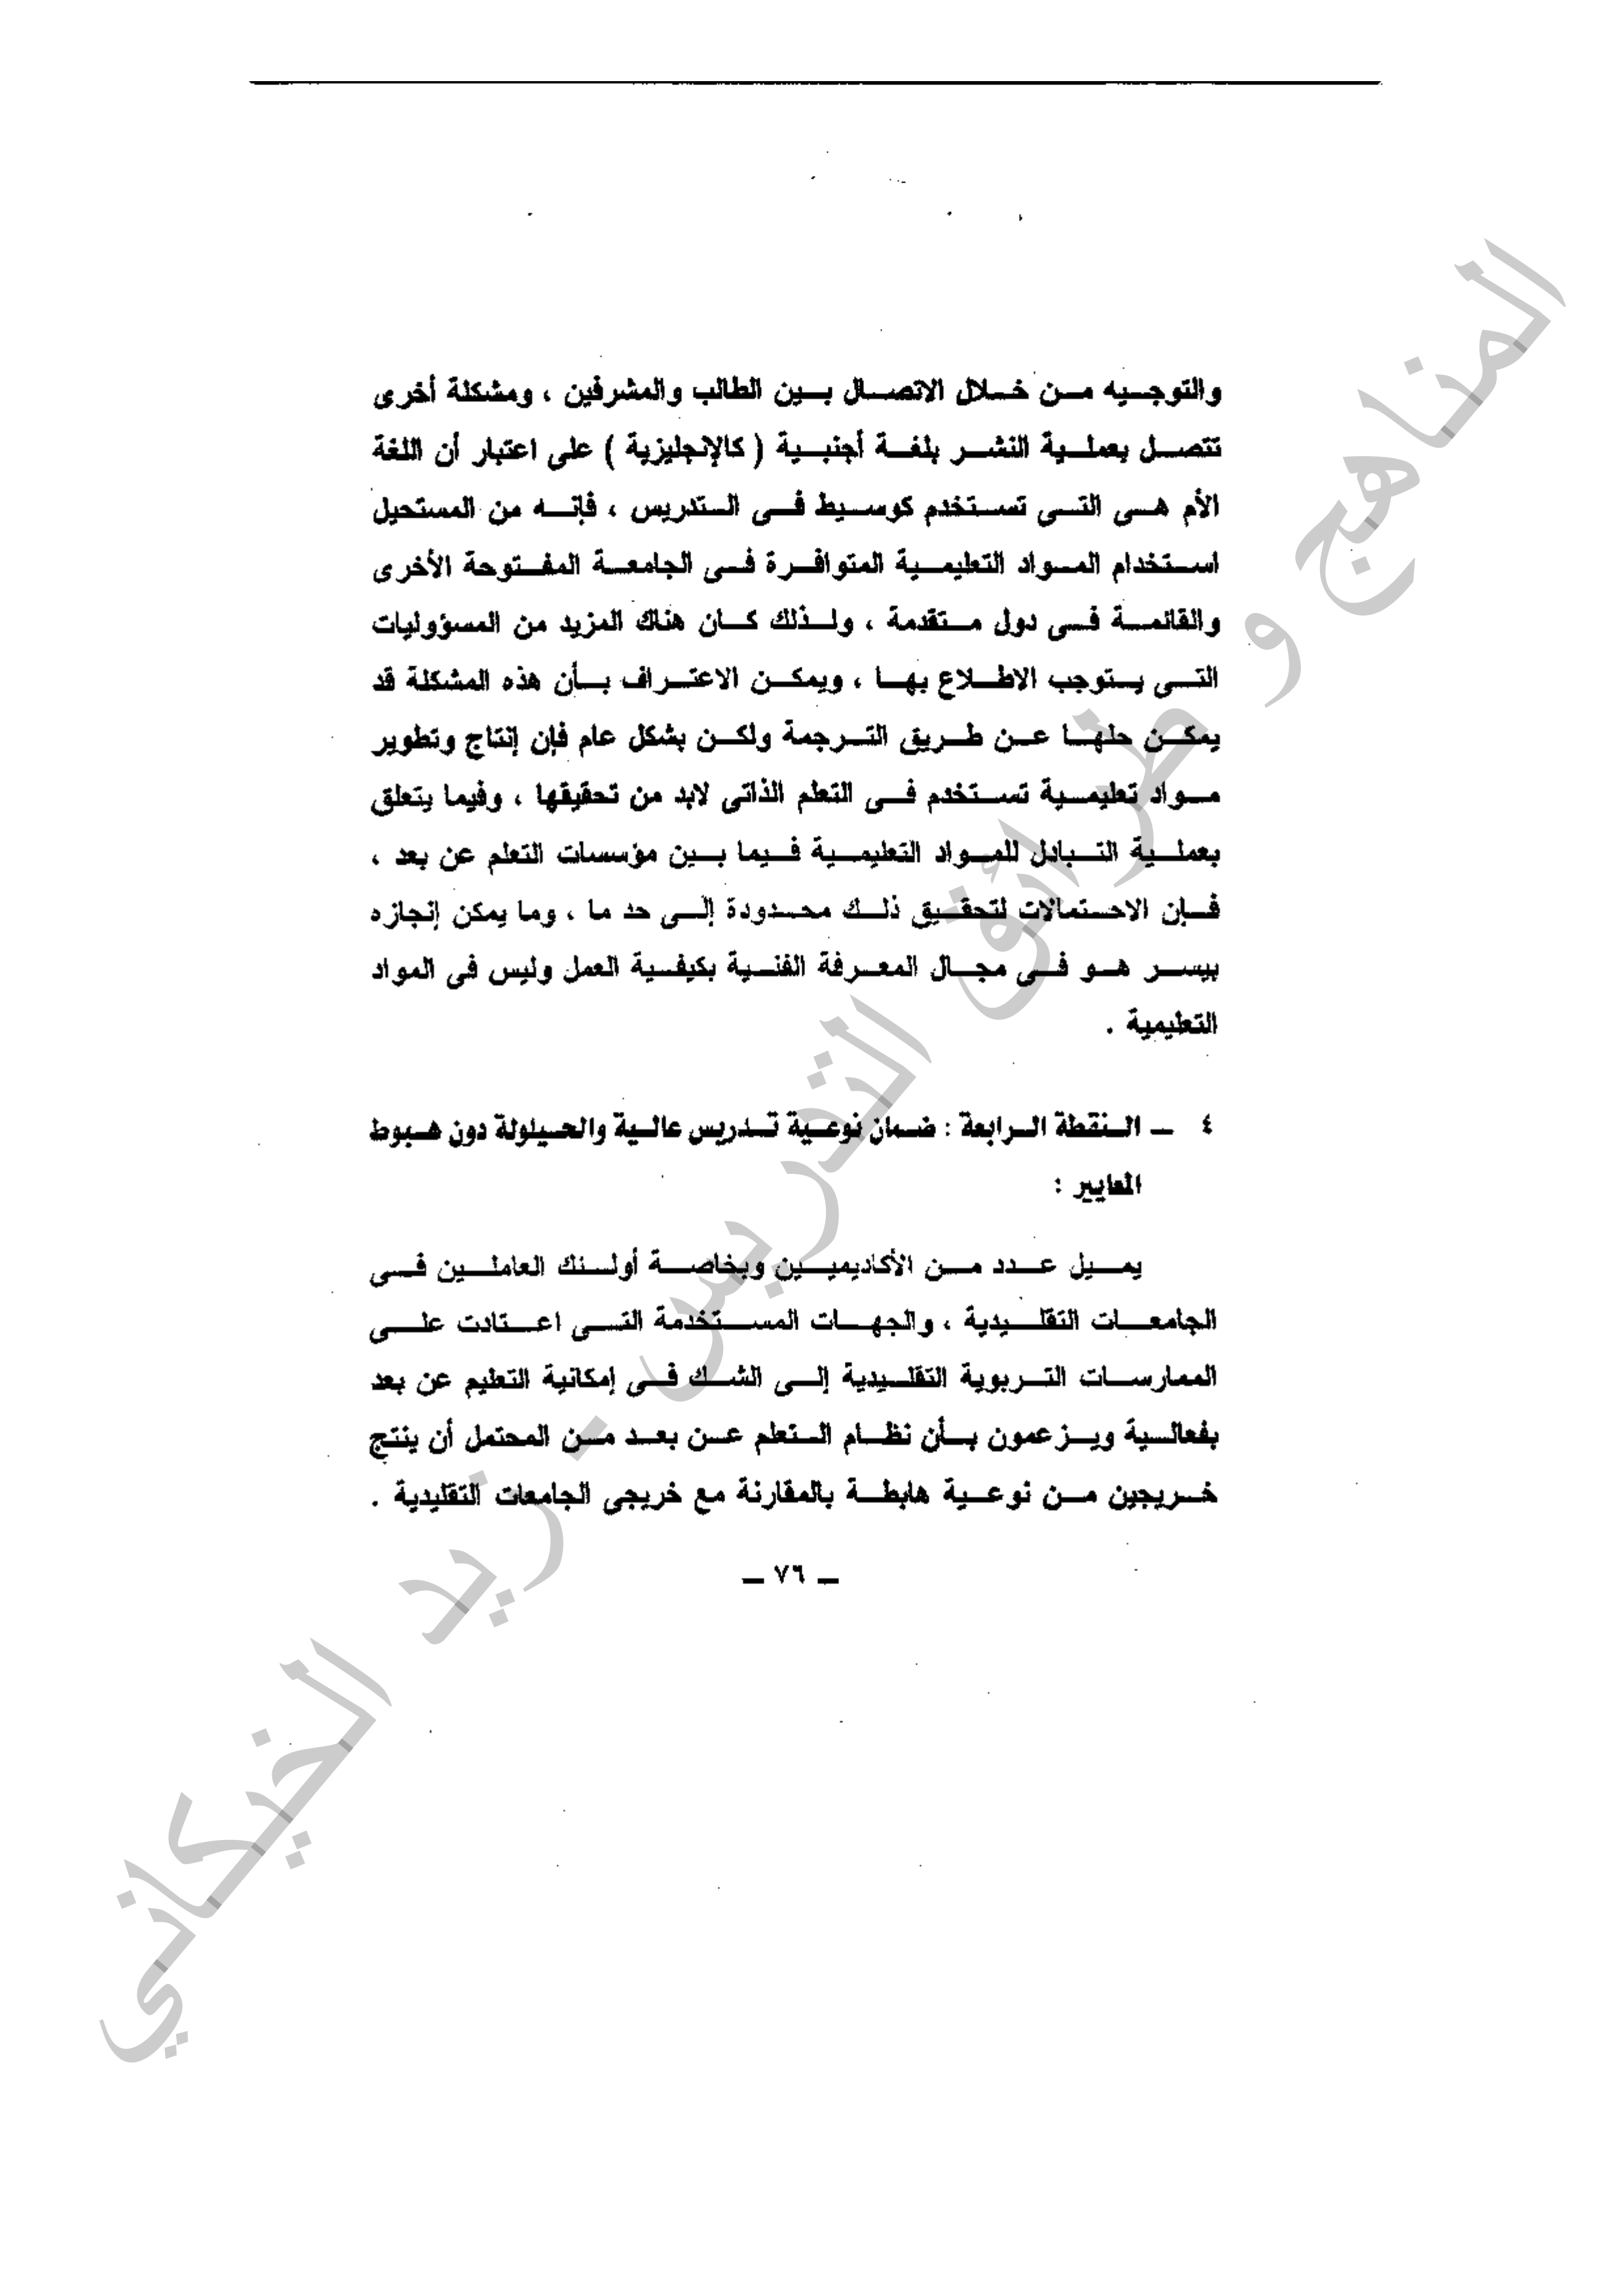 والتوجيه من خلال الاتصال بين الطالب والمشرفين ، ومشكلة أخرى
تتصل بعملية النشر بلغة أجنبية ( كالإنجليزية ) على اعتبار أن اللغة
الأم هى التى تستخدم كوسيط فى التدريس ، فإنه من المستحيل
استخدام المواد التعليمية المتوافرة فى الجامعة المفتوحة الأخرى
والقائمة فى دول متقدمة ، ولذلك كان هناك المزيد من المسؤوليات
التى يتوجب الاطلاع بها ، ويمكن الاعتراف بأن هذه المشكلة قد
يمكن حلها عن طريق الترجمة ولكن بشكل عام فإن إنتاج وتطوير
مواد تعليمية تستخدم فى التعلم الذاتى لابد من تحقيقها ، وفيما يتعلق
بعملية التبادل للمواد التعليمية فيما بين مؤسسات التعلم عن بعد ،
فإن الاحتمالات لتحقيق ذلك محدودة إلى حد ما ، وما يمكن إنجازه
بيسر هو فى مجال المعرفة الفنية بكيفية العمل وليس فى المواد
التعليمية .
٤ – النقطة الرابعة : ضمان نوعية تدريس عالية والحيلولة دون هبوط
المعايير :
يميل عدد من الأكاديميين وبخاصة أولئك العاملين فى
الجامعات التقليدية ، والجهات المستخدمة التى اعتادت على
الممارسات التربوية التقليدية إلى الشك فى إمكانية التعليم عن بعد
بفعالية ويزعمون بأن نظام التعلم عن بعد من المحتمل أن ينتج
خريجين من نوعية هابطة بالمقارنة مع خريجى الجامعات التقليدية .
– ٧٦ –
المناهج و طرائق التدريس - زيد الخيكاني